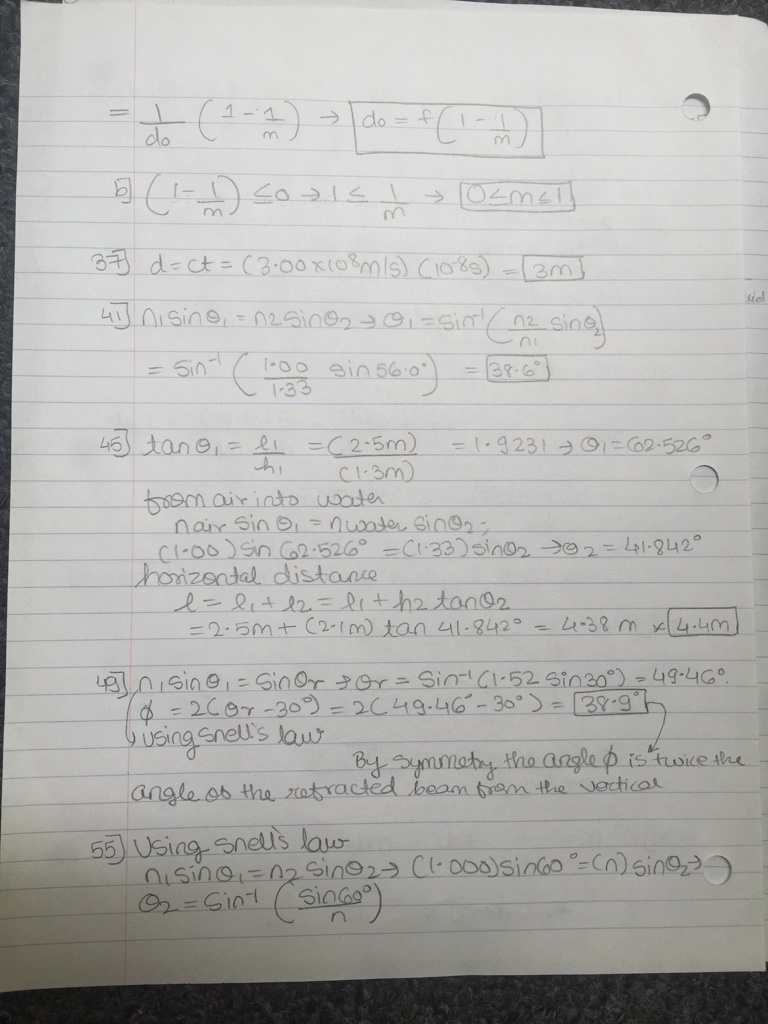 = 1/do (1 - 1/m) → do = f(1 - 1/m)
b] (1 - 1/m) ≤ 0 → 1 ≤ 1/m → 0 ≤ m ≤ 1
37] d = ct = (3.00 x 10^8 m/s) (10^-8 s) = 3m
41] n1 sinθ1 = n2 sinθ2 → θ1 = sin^-1 (n2/n1 sinθ2)
= sin^-1 (1.00/1.33 sin 56.0°) = 38.6°
45] tanθ1 = l1/h1 = (2.5m)/(1.3m) = 1.9231 → θ1 = 62.526°
from air into water
nair sinθ1 = nwater sinθ2;
(1.00) sin 62.526° = (1.33) sinθ2 → θ2 = 41.842°
horizontal distance
l = l1 + l2 = l1 + h2 tanθ2
= 2.5m + (2.1m) tan 41.842° = 4.38 m ≈ 4.4m
49] n1 sinθ1 = sinθr → θr = sin^-1 (1.52 sin 30°) = 49.46°.
ϕ = 2(θr - 30°) = 2(49.46° - 30°) = 38.9°
using snell's law
By symmetry the angle ϕ is twice the
angle of the refracted beam from the vertical
55] Using snell's law
n1 sinθ1 = n2 sinθ2 → (1.000) sin60° = (n) sinθ2 →
θ2 = sin^-1 (sin60°/n)